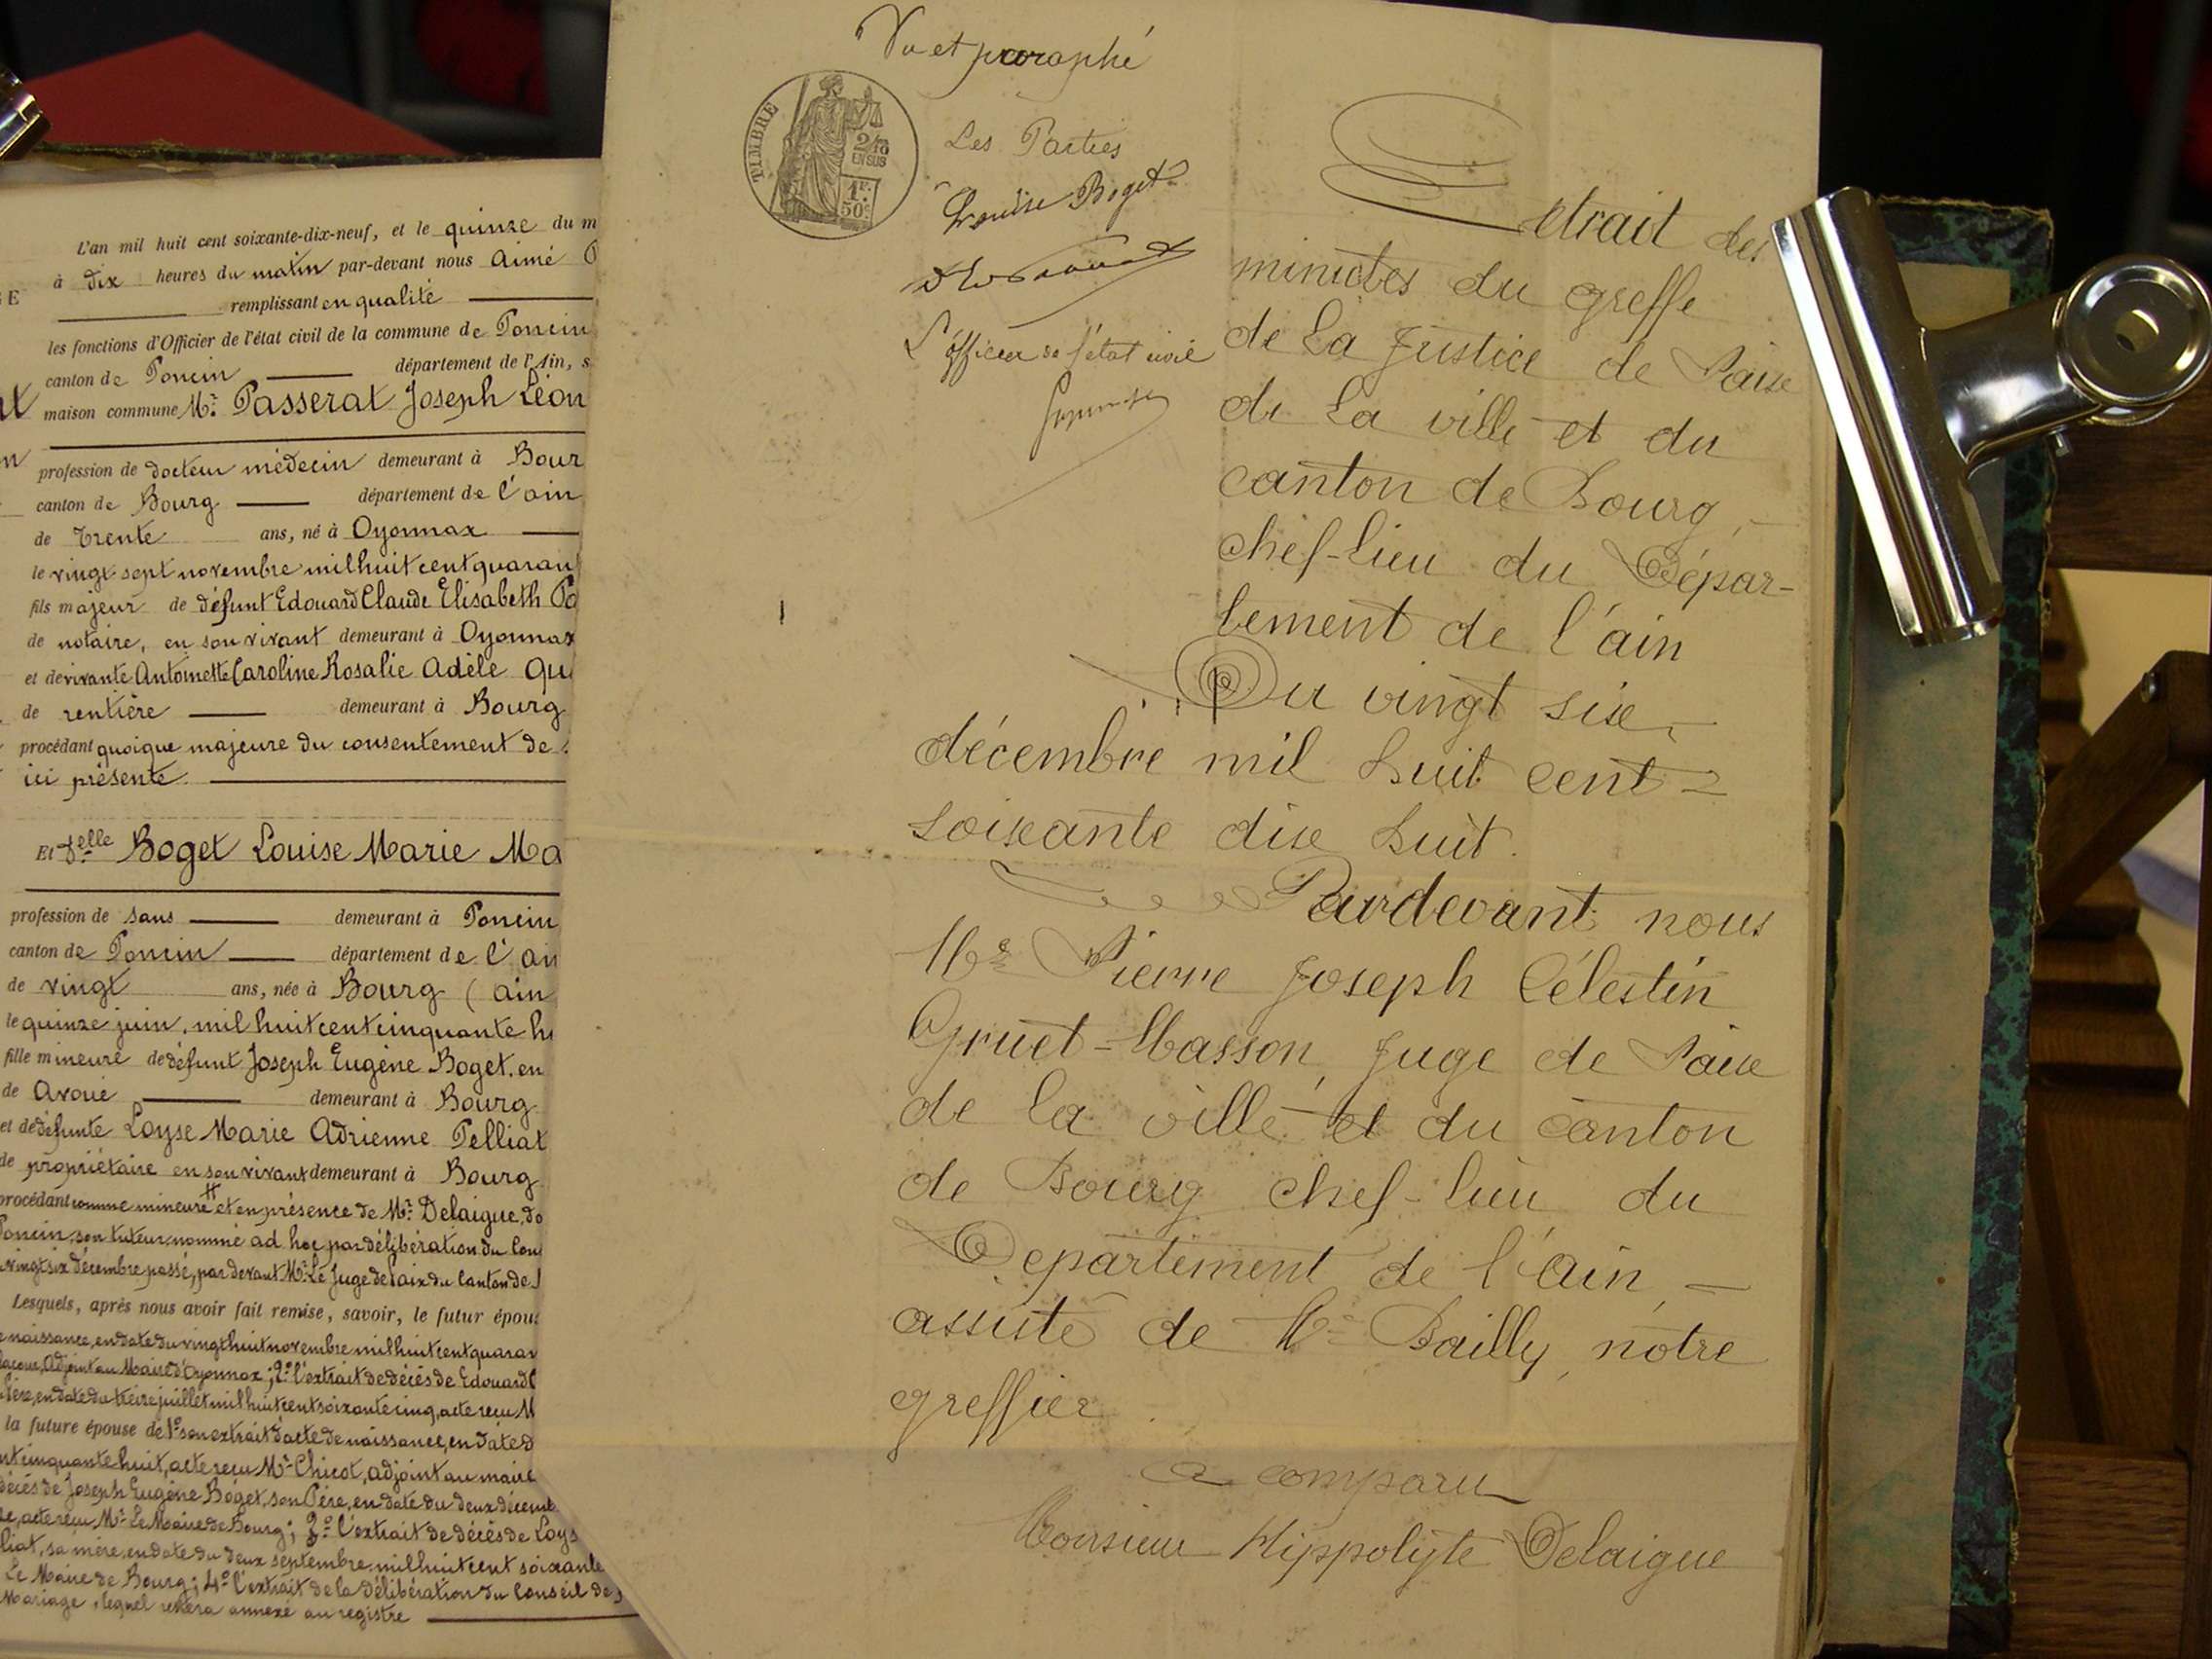 L'an mil huit cent soixante-dix-neuf, et le quinze du m
à dix heures du matin par-devant nous Aimé
remplissant en qualité
les fonctions d'Officier de l'état civil de la commune de Poncin
canton de Poncin département de l'Ain, s
maison commune Mr. Passerat Joseph Léon
profession de docteur médecin demeurant à Bour
canton de Bourg département de l'ain
de trente ans, né à Oyonnax
le vingt sept novembre mil huit cent quaran
fils majeur de défunt Edouard Claude Elisabeth Pa
de notaire, en son vivant demeurant à Oyonnax
et de vivante Antoinette Caroline Rosalie Adèle Qu
de rentière demeurant à Bourg
procédant quoique majeure du consentement de
ici présente
Et delle Boget Louise Marie Ma
profession de sans demeurant à Poncin
canton de Poncin département de l'ain
de vingt ans, née à Bourg (ain
le quinze juin, mil huit cent cinquante hu
fille mineure de défunt Joseph Eugène Boget, en
de Avoué demeurant à Bourg
et de défunte Loyse Marie Adrienne Pelliat
de propriétaire en son vivant demeurant à Bourg
procédant comme mineure et en présence de Mr. Delaigue, do
Poncin, son tuteur, nommé ad hoc par délibération du Con
vingt six décembre passé, par devant Mr. Le Juge de Paix du Canton de
Lesquels, après nous avoir fait remise, savoir, le futur épou
naissance, en date du vingt huit novembre mil huit cent quaran
Adjoint au Maire d'Oyonnax; 2° l'extrait de décès de Edouard C
Père, en date du treize juillet mil huit cent soixante cinq, acte reçu M
la future épouse de 1° son extrait d'acte de naissance, en date d
nt cinquante huit, acte reçu Mr. Chicot, adjoint au maire
décès de Joseph Eugène Boget, son Père, en date du deux décemb
acte reçu Mr. Le Maire de Bourg; 3° l'extrait de décès de Loys
liat, sa mère, en date du deux septembre mil huit cent soixante
Le Maire de Bourg; 4° l'extrait de la délibération du Conseil de
Mariage, lequel restera annexé au registre
Vu et paraphé
TIMBRE
2/10
EN SUS
1F.
50c
Les Parties
Louise Boget
L'officier de l'état civil
Extrait des
minutes du greffe
de la Justice de Paix
de la ville et du
canton de Bourg,
chef-lieu du Dépar-
tement de l'ain
Du vingt six
décembre mil huit cent
soixante dix huit.
Pardevant nous
Mr. Pierre Joseph Célestin
Gruet-Masson, Juge de Paix
de la ville et du canton
de Bourg chef-lieu du
Département de l'Ain,
assisté de Me Bailly, notre
greffier.
a comparu
Monsieur Hippolyte Delaigue